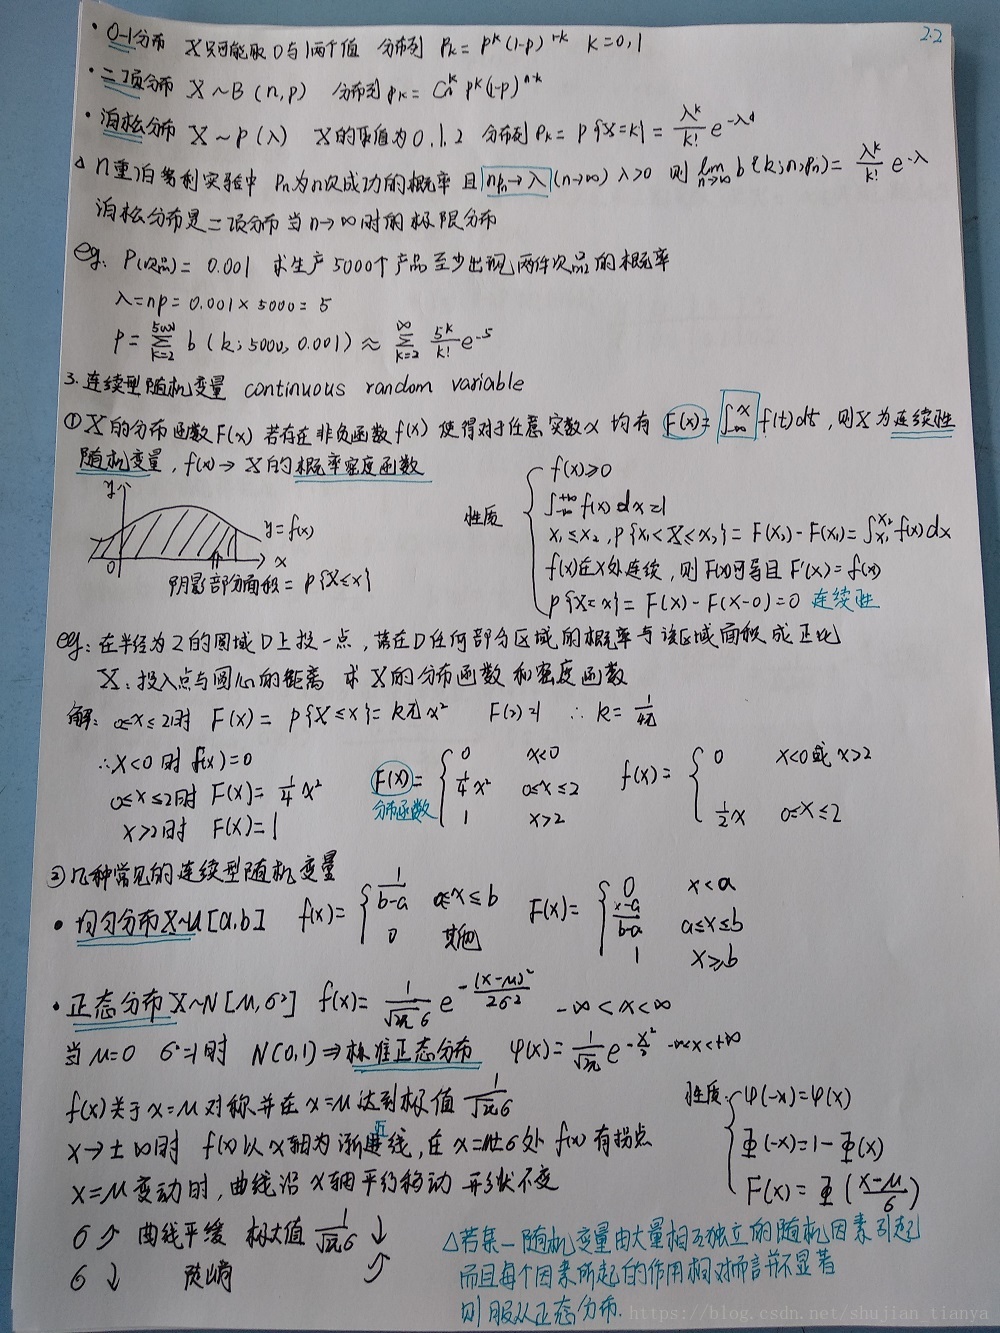 2.2
· 0-1分布 X只可能取0与1两个值 分布列 Pk = p^k (1-p)^{1-k} K=0,1
· 二项分布 X~B(n,p) 分布列 pk = C_n^k p^k (1-p)^{n-k}
· 泊松分布 X~p(λ) X的取值为0,1,2 分布列 Pk = P{X=k} = λ^k/k! e^{-λ}
△ n重泊努利实验中 Pn为n次成功的概率 且 npn→λ (n→∞) λ>0 则 lim_{n→∞} b(k;n,pn) = λ^k/k! e^{-λ}
泊松分布是二项分布当n→∞时的极限分布
eg: P(次品) = 0.001 求生产5000个产品至少出现两件次品的概率
λ=np=0.001×5000=5
P = ∑_{k=2}^{5000} b(k; 5000, 0.001) ≈ ∑_{k=2}^{∞} 5^k/k! e^{-5}
3. 连续型随机变量 continuous random variable
① X的分布函数F(x) 若存在非负函数f(x) 使得对于任意实数x 均有 F(x)=∫_{-∞}^{x} f(t)dt, 则X为连续性
随机变量, f(x)→X的概率密度函数
y
y=f(x)
0 x
阴影部分面积 = P{X≤x}
性质
f(x)≥0
∫_{-∞}^{+∞} f(x)dx=1
x₁≤x₂, P{x₁<X≤x₂} = F(x₂)-F(x₁) = ∫_{x₁}^{x₂} f(x)dx
f(x)在x处连续, 则F(x)可导且F'(x)=f(x)
P{X=x} = F(x)-F(x-0)=0 连续性
eg: 在半径为2的圆域D上投一点, 落在D任何部分区域的概率与该区域面积成正比
X: 投入点与圆心的距离 求X的分布函数和密度函数
解: 0≤x≤2时 F(x) = P{X≤x} = kπx² F(2)=1 ∴ k = 1/4π
∴x<0时 f(x)=0
0≤x≤2时 F(x) = 1/4 x²
x>2时 F(x)=1
F(x) = { 0 x<0
1/4 x² 0≤x≤2
1 x>2
分布函数
f(x) = { 0 x<0或x>2
1/2 x 0≤x≤2
② 几种常见的连续型随机变量
· 均匀分布X~U[a,b] f(x) = { 1/(b-a) a≤x≤b
0 其他
F(x) = { 0 x<a
(x-a)/(b-a) a≤x≤b
1 x≥b
· 正态分布X~N[μ,σ²] f(x) = 1/(√2π σ) e^{-(x-μ)²/2σ²} -∞<x<∞
当μ=0 σ²=1时 N(0,1)⇒标准正态分布 φ(x) = 1/√2π e^{-x²/2} -∞<x<+∞
f(x)关于x=μ对称并在x=μ达到极值 1/(√2π σ)
x→±∞时 f(x)以x轴为渐近线, 在x=μ±σ处f(x)有拐点
x=μ变动时, 曲线沿x轴平行移动 形状不变
σ↗ 曲线平缓 极大值 1/(√2π σ) ↓
σ↓ 陡峭 ↗
性质: { φ(-x)=φ(x)
Φ(-x)=1-Φ(x)
F(x) = Φ((x-μ)/σ)
△若某一随机变量由大量相互独立的随机因素引起
而且每个因素所起的作用相对而言并不显著
则服从正态分布.
https://blog.csdn.net/shujian_tianya